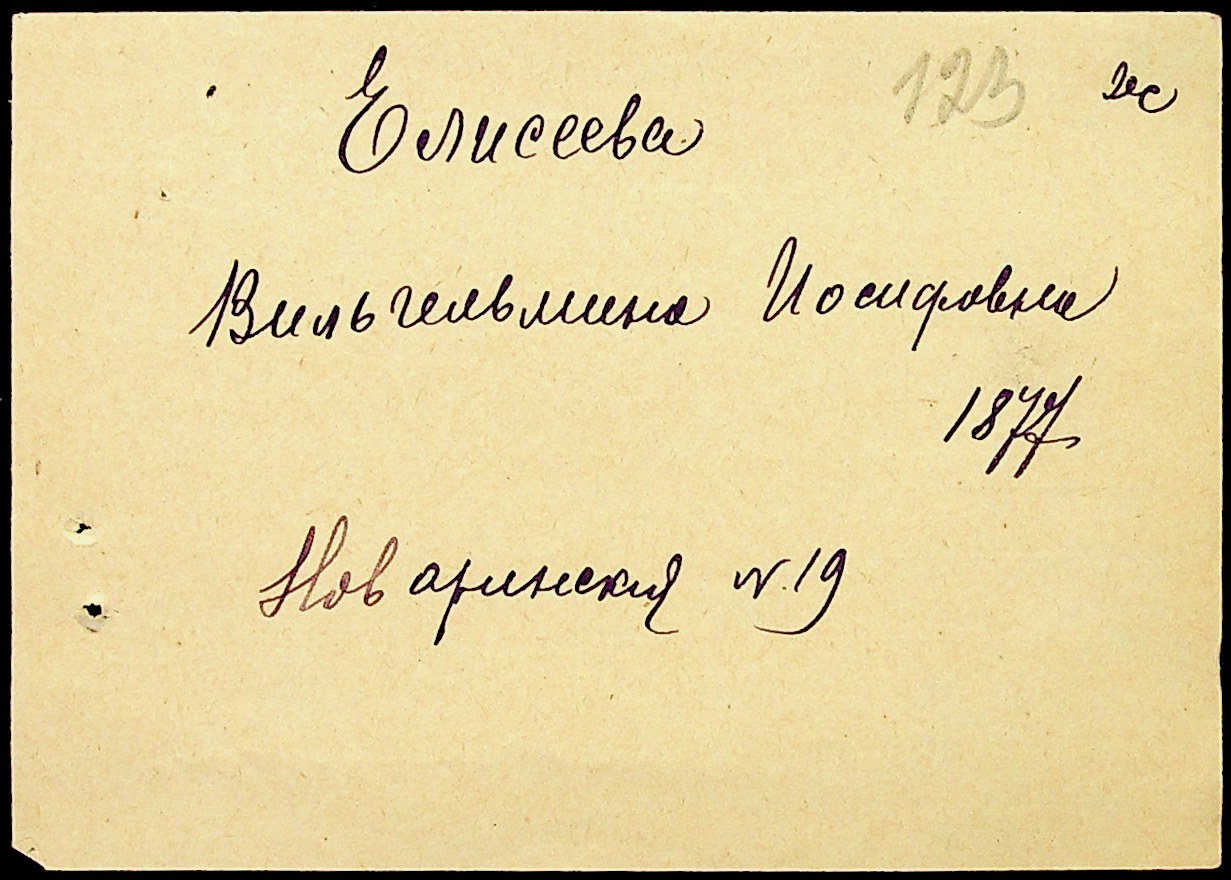 123
Елисеева
Вильгельмина Иосифовна
1877
Новаринская N.19